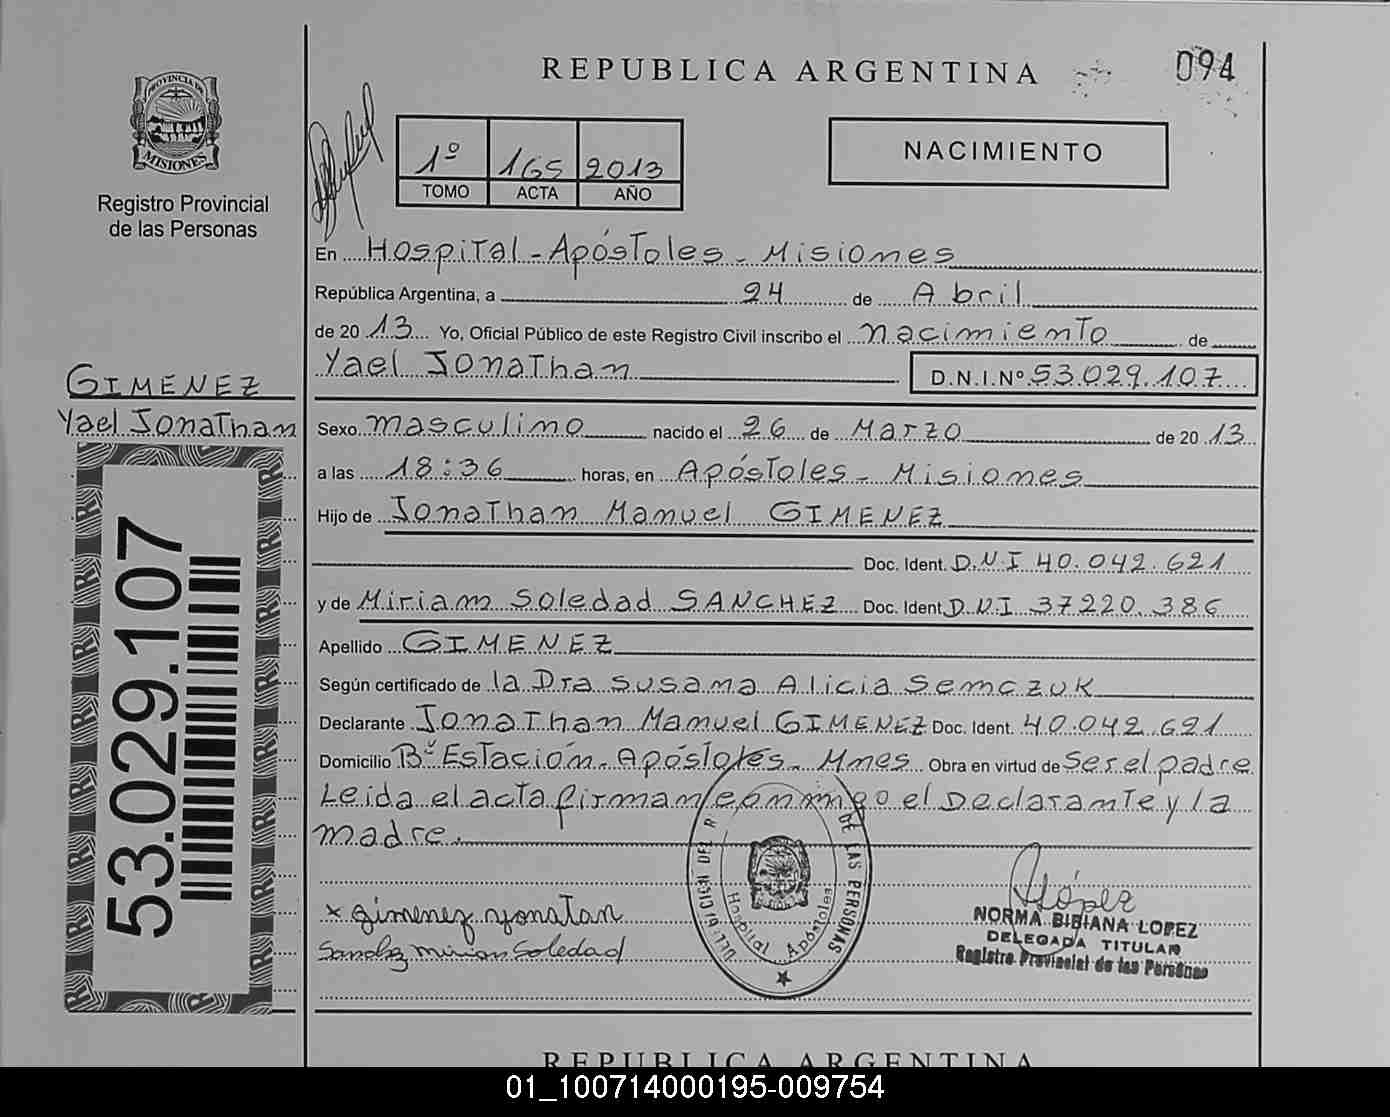 REPUBLICA ARGENTINA
094
PROVINCIA DE
MISIONES
Registro Provincial
de las Personas
1º 165 2013
TOMO ACTA AÑO
NACIMIENTO
En Hospital - Apóstoles - Misiones
República Argentina, a 24 de Abril
de 20 13 Yo, Oficial Público de este Registro Civil inscribo el nacimiento de
Yael Jonathan D.N.I.Nº 53.029.107
GIMENEZ
Yael Jonathan
Sexo masculino nacido el 26 de Marzo de 20 13
a las 18:36 horas, en Apóstoles - Misiones
Hijo de Jonathan Manuel GIMENEZ
Doc. Ident. D.N.I 40.042.621
y de Miriam Soledad SANCHEZ Doc. Ident. D.N.I 37220.386
Apellido GIMENEZ
Según certificado de la Dra Susana Alicia Semczuk
Declarante Jonathan Manuel GIMENEZ Doc. Ident. 40.042.621
Domicilio Bº Estación - Apóstoles - Mnes Obra en virtud de ser el padre
Leida el acta firman conmigo el Declarante y la
madre.
53.029.107
x gimenez yonatan
Sanchez Mirian Soledad
DELEGACION DEL R DE LAS PERSONAS
Hospital Apóstoles
López
NORMA BIBIANA LOPEZ
DELEGADA TITULAR
Registro Provincial de las Personas
REPUBLICA ARGENTINA
01_100714000195-009754